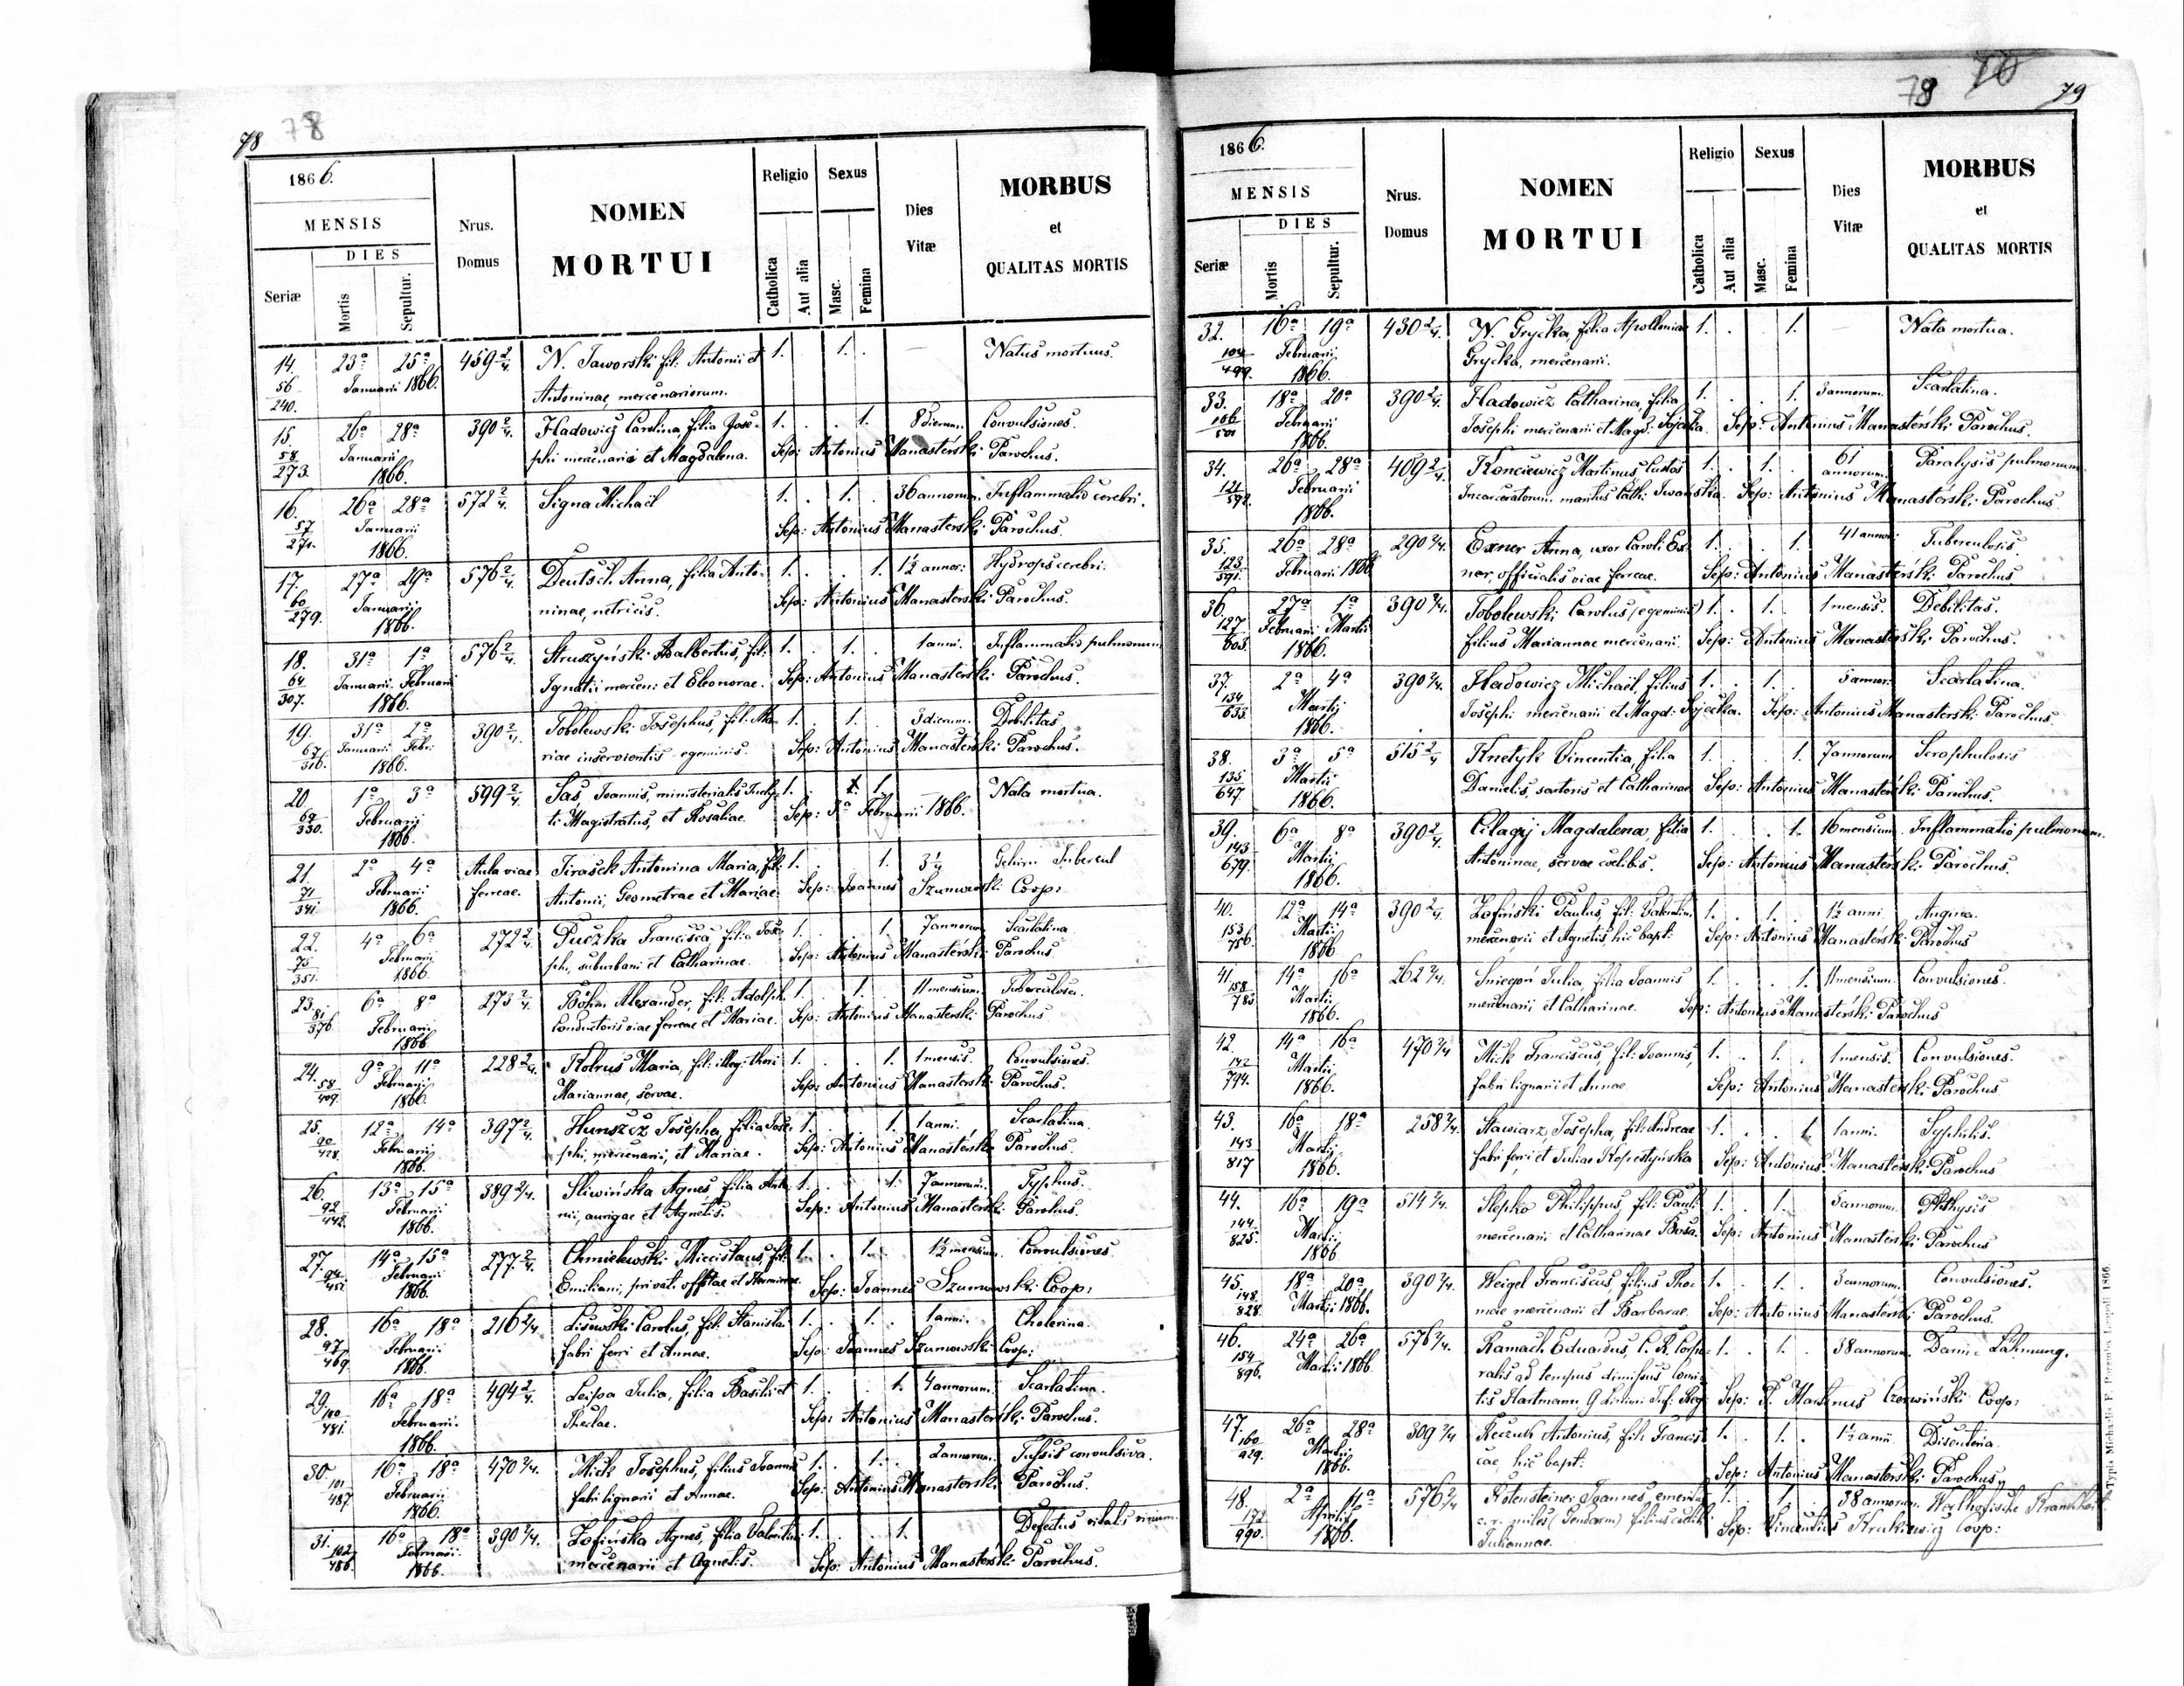 78 78
1866.
MENSIS
DIES
Seriæ Mortis Sepultur.
Nrus. Domus
NOMEN MORTUI
Religio
Catholica Aut alia
Sexus
Masc. Femina
Dies Vitæ
MORBUS
et
QUALITAS MORTIS
14. 23a 25a 459 2/4. N. Jaworski fil. Antonii et 1. 1. Natus mortuus.
56/240. Januarii 1866. Antoninae, mercenariorum.
15. 26a 28a 390 2/4. Hadowicz Carolina, filia Jose- 1. 1. 8 dierum. Convulsiones.
58/273. Januarii 1866. phi mercenarii et Magdalena. Sep: Antonius Manasterski Parochus.
16. 26a 28a 572 2/4. Signa Michael 1. 1. 36 annorum. Inflammatio cerebri.
57/271. Januarii 1866. Sep: Antonius Manasterski Parochus.
17. 27a 29a 576 2/4. Deutsch Anna, filia Anto- 1. 1. 1½ annor: Hydrops cerebri.
60/279. Januarii 1866. ninae, nutricis. Sep: Antonius Manasterski Parochus.
18. 31a 1a 576 2/4. Struszyński Adalbertus, fil: 1. 1. 1 anni. Inflammatio pulmonum
64/307. Januarii Februarii 1866. Ignatii mercen: et Eleonorae. Sep: Antonius Manasterski Parochus.
19. 31a 2a 390 2/4. Tobolewski Josephus, fil: Ma- 1. 1. 3 dierum. Debilitas
67/316. Januarii Febr: 1866. riae inservientis egeminis. Sep: Antonius Manasterski Parochus.
20. 1a 3a 599 2/4. Saś Joannis, ministerialis Incly- 1. 1. Nata mortua.
69/330. Februarii 1866. ti Magistratus, et Rosaliae. Sep: 3a Februarii 1866.
21. 2a 4a Aula viae Jirasek Antonina Maria, fil: 1. 1. 3¼ Gehirn Tubercul
71/341. Februarii 1866. ferreae. Antonii, Geometrae et Mariae. Sep: Joannes Szumowski Coop:
22. 4a 6a 272 2/4 Puczka Francisca, filia Jose- 1. 1. 7 annorum Scarlatina
75/351. Februarii 1866. phi, suburbani et Catharinae. Sep: Antonius Manasterski Parochus
23. 6a 8a 273 2/4. Böhm Alexander, fil: Adolph 1. 1. 11 mensium. Tuberculosis.
81/376. Februarii 1866 Conductoris viae ferreae et Mariae. Sep: Antonius Manasterski Parochus
24. 9a 11a 228 2/4. Kotrus Maria, fil: illeg: thori 1. 1. 1 mensis. Convulsiones.
58/409. Februarii 1866 Mariannae, servae. Sep: Antonius Manasterski Parochus.
25. 12a 14a 397 2/4. Hunszcz Josepha, filia Jose- 1. 1. 1 anni. Scarlatina.
90/428. Februarii 1866. phi, mercenarii, et Mariae. Sep: Antonius Manasterski Parochus.
26. 13a 15a 389 2/4. Sliwińska Agnes, filia Anto- 1. 1. 7 annorum. Typhus.
92/442. Februarii 1866. nii, aurigae et Agnetis. Sep: Antonius Manasterski Parochus.
27. 14a 15a 277 2/4. Chmielewski Miecislaus, fil: 1. 1. 1½ mensium. Convulsiones.
94/451. Februarii 1866. Emiliani, privat. offitae et Herminae. Sep: Joannes Szumowski Coop:
28. 16a 18a 216 2/4. Lisowski Carolus, fil: Stanislai 1. 1. 1 anni. Cholerina.
97/469. Februarii 1866. fabri ferri et Annae. Sep: Joannes Szumowski Coop:
29. 16a 18a 494 2/4. Leipa Julia, filia Basilii et 1. 1. 4 annorum. Scarlatina.
100/481. Februarii. 1866. Theclae. Sep: Antonius Manasterski Parochus.
30. 16a 18a 470 2/4. Mick Josephus, filius Joannis 1. 1. 2 annorum. Tussis convulsiva.
101/487 Februarii 1866. fabri lignarii et Annae. Sep: Antonius Manasterski Parochus.
31. 16a 18a 390 2/4. Zofińska Agnes, filia Valentini 1. 1. Defectus vitalis virium.
102/486. Februarii. 1866. mercenarii et Agnetis. Sep: Antonius Manasterski Parochus.
78 79
1866.
MENSIS
DIES
Seriæ Mortis Sepultur.
Nrus. Domus
NOMEN MORTUI
Religio
Catholica Aut alia
Sexus
Masc. Femina
Dies Vitæ
MORBUS
et
QUALITAS MORTIS
32. 16a 19a 430 2/4. N. Grycka, filia Apolloniae 1. 1. Nata mortua.
104/499. Februarii 1866. Grycka, mercenarii.
33. 18a 20a 390 2/4. Hadowicz Catharina, filia 1. 1. 3 annorum. Scarlatina.
106/501 Februarii 1866. Josephi mercenarii et Magd: Sojecka. Sep: Antonius Manasterski Parochus.
34. 26a 28a 409 2/4. Konciewicz Martinus, Custos 1. 1. 61 annorum Paralysis pulmonum
121/592. Februarii 1866. Incarceratorum. maritus Cath: Iwańska. Sep: Antonius Manasterski Parochus.
35. 26a 28a 290 2/4. Exner Anna, uxor Caroli Ex- 1. 1. 41 annor: Tuberculosis
123/591. Februarii 1866 ner, officialis viae ferreae. Sep: Antonius Manasterski Parochus
36. 27a 1a 390 2/4. Tobolewski Carolus, (egeminis) 1. 1. 1 mensis. Debilitas.
127/605. Februarii Martii 1866. filius Mariannae mercenarii. Sep: Antonius Manasterski Parochus.
37. 2a 4a 390 2/4. Hadowicz Michael, filius 1. 1. 5 annor: Scarlatina.
134/633. Martij 1866. Josephi mercenarii et Magd: Sojecka. Sep: Antonius Manasterski Parochus
38. 3a 5a 515 2/4 Knetyk Vincentia, filia 1. 1. 7 annorum Scrophulosis
135/647. Martii 1866. Danielis, sartoris et Catharinae Sep: Antonius Manasterski Parochus.
39. 6a 8a 390 2/4. Cilagij Magdalena, filia 1. 1. 16 mensium. Inflammatio pulmonum.
143/679. Martii 1866. Antoninae, servae coelibis. Sep: Antonius Manasterski Parochus.
40. 12a 14a 390 2/4. Zofiński Paulus, fil: Valentini 1. 1. 1½ anni. Angina.
153/756. Martii 1866 mercenarii et Agnetis, hic bapt: Sep: Antonius Manasterski Parochus
41. 14a 16a 262 2/4. Sniecpoń Julia, filia Joannis 1. 1. 11 mensium. Convulsiones.
158/785. Martii 1866. mercenarii, et Catharinae. Sep: Antonius Manasterski Parochus
42. 14a 16a 470 2/4 Mick Franciscus, fil: Joannis, 1. 1. 1 mensis. Convulsiones.
142/794. Martii 1866. fabri lignarii et Annae Sep: Antonius Manasterski Parochus
43. 16a 18a 258 2/4. Stawiarz, Josepha, fil: Andreae 1. 1. 1 anni. Syphilis.
143/817 Martii 1866. fabri ferri et Juliae Kopestyńska Sep: Antonius Manasterski Parochus
44. 16a 19a 514 2/4. Slepko Philippus, fil: Pauli 1. 1. 5 annorum. Phthysis
144/825. Martii 1866 mercenarii et Catharinae Bosa. Sep: Antonius Manasterski Parochus
45. 18a 20a 390 2/4. Weigel Franciscus, filius Tho- 1. 1. 3 annorum. Convulsiones.
148/828. Martii 1866. mae mercenarii et Barbarae. Sep: Antonius Manasterski Parochus.
46. 24a 26a 576 2/4. Ramach Eduardus, C. R. Corpo- 1. 1. 38 annorum. Darm-Lähmung.
154/896. Martii 1866 ralis ad tempus dimissus Comi-
tis Hartmann 9 Linien Inf: Reg Sep: P. Martinus Czerwiński Coop:
47. 26a 28a 309 2/4 Keczuh Antonius, fil: Francis- 1. 1. 1½ anni. Disenteria.
160/929. Martii 1866. cae, hic bapt: Sep: Antonius Manasterski Parochus
48. 2a 4a 576 2/4 Rotensteiner Joannes emeritus 1. 1. 38 annorum.
172/990. Aprilis 1866. c. r. miles (Gendarm) filius coelib: Sep: Vincentius Hrukiewicz Coop:
Juliannae.
Typis Michaelis F. Poremba Leopoli 1866.